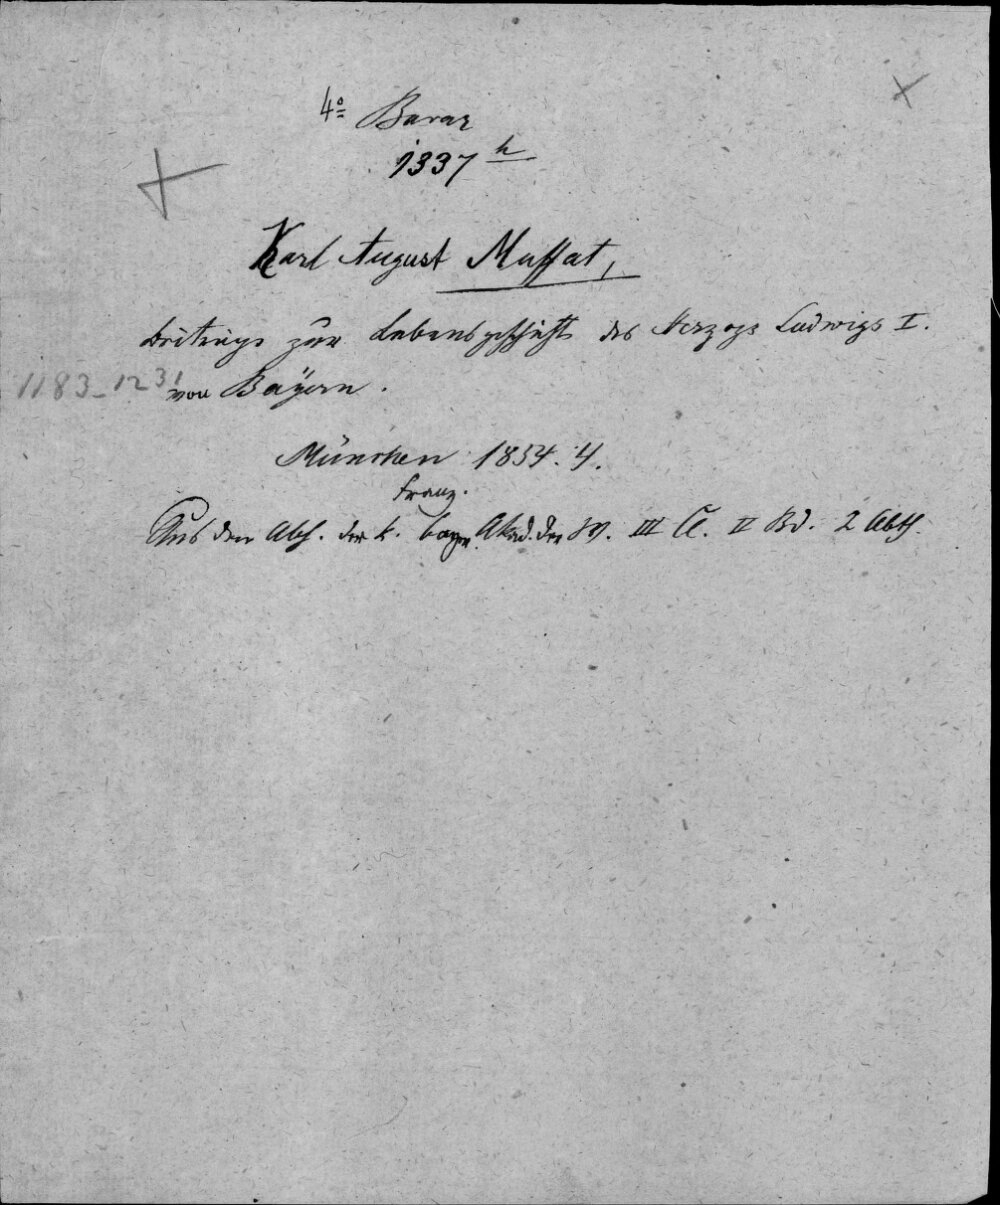 4° Bavar
1337 h
Karl August Muffat,
Beiträge zur Lebensgeschichte des Herzogs Ludwigs I.
1183-1231
von Bayern.
München 1854. 4.
Franz.
Aus den Abh. der k. bayer. Akad. der W. III Cl. II Bd. 2 Abth.